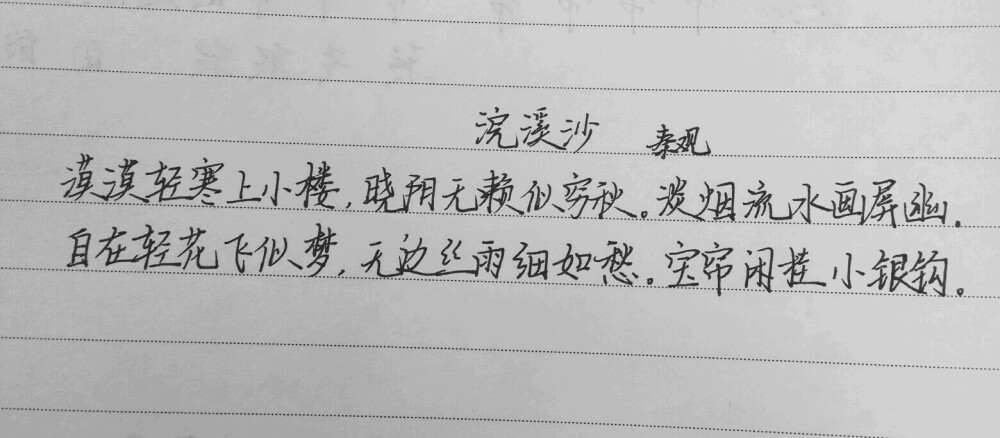 浣溪沙 秦观
漠漠轻寒上小楼,晓阴无赖似穷秋。淡烟流水画屏幽.
自在轻花飞似梦,无边丝雨细如愁。宝帘闲挂小银钩。